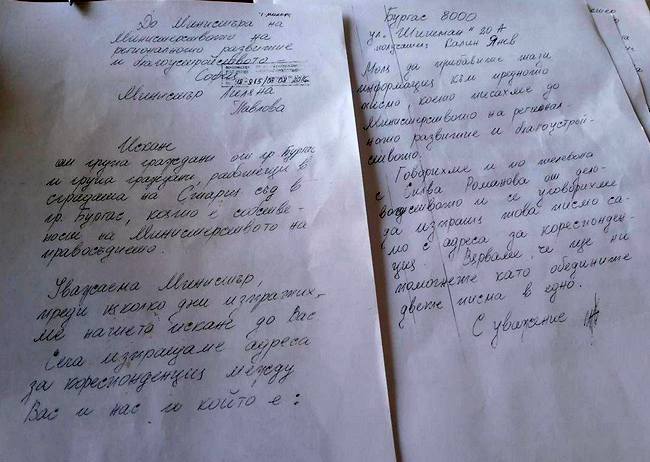 До Министъра на
Министерството на
регионалното развитие
и благоустройството –
София
Министър Лиляна
Павлова
Искане
от група граждани от гр. Бургас
и група граждани, работещи в
сградата на Стария съд в
гр. Бургас, която е собстве-
ност на Министерството на
правосъдието.
Уважаема Министър,
преди няколко дни изпратих-
ме нашето искане до Вас
Сега изпращаме адреса
за кореспонденция между
Вас и нас и който е:
Бургас 8000
ул. "Шишман" 20 А
получател Калин Янев
Моля да прибавите тази
информация към предното
писмо, което писахме до
Министерството на регионал-
ното развитие и благоустрой-
ството.
Говорихме и по телефона
с Силва Романова от дело-
водството и се уговорихме
да изпратя това писмо са-
мо с адреса за кореспонден-
ция. Вярвам, че ще ни
помогнете като обедините
двете писма в едно.
С уважение